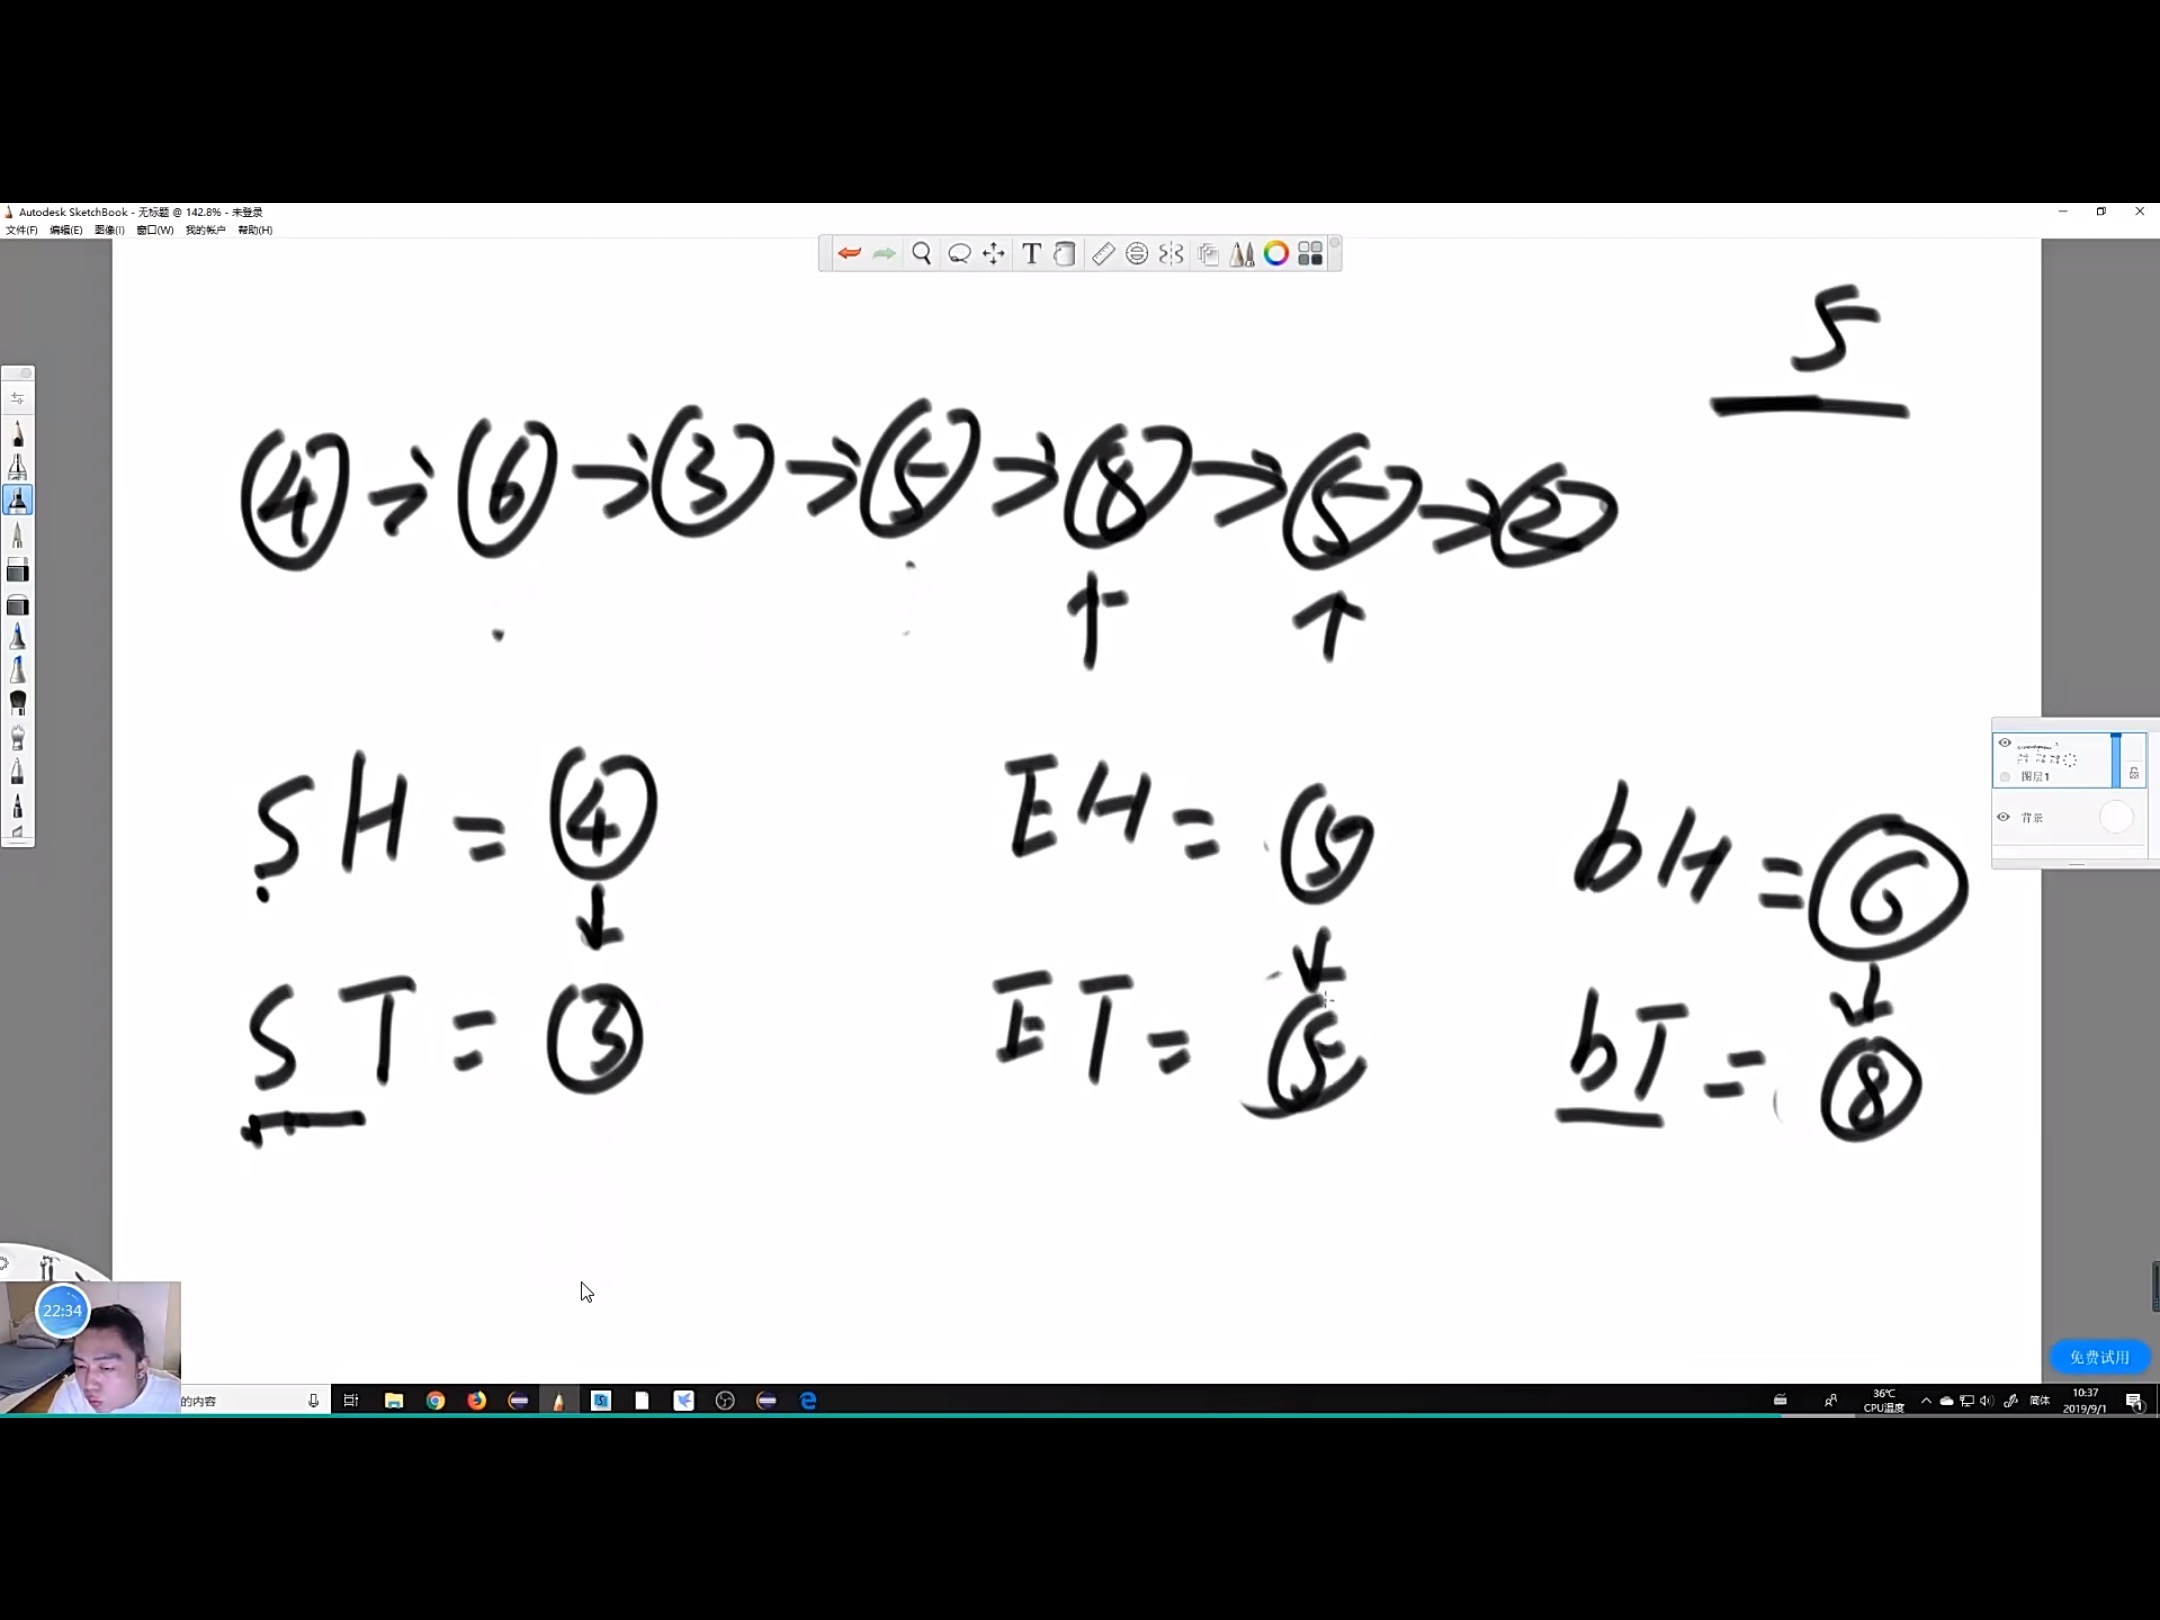 Autodesk SketchBook - 无标题 @ 142.8% - 未登录
文件(F) 编辑(E) 图像(I) 窗口(W) 我的帐户 帮助(H)
5
4 → 6 → 3 → 5 → 8 → 5 → 2
SH = 4 EH = 5 bH = 6
ST = 3 ET = 5 bT = 8
图层1
背景
22:34
免费试用
的内容
36℃
CPU温度
简体
10:37
2019/9/1
1